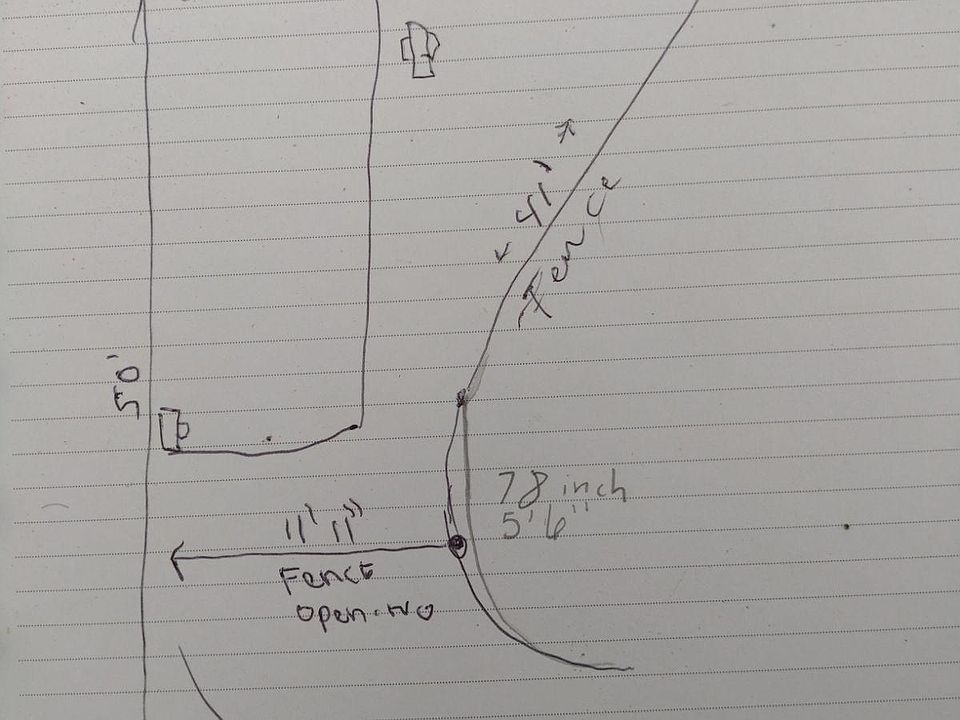 41'
Fence
50'
78 inch
5' 6"
11' 11"
Fence
opening